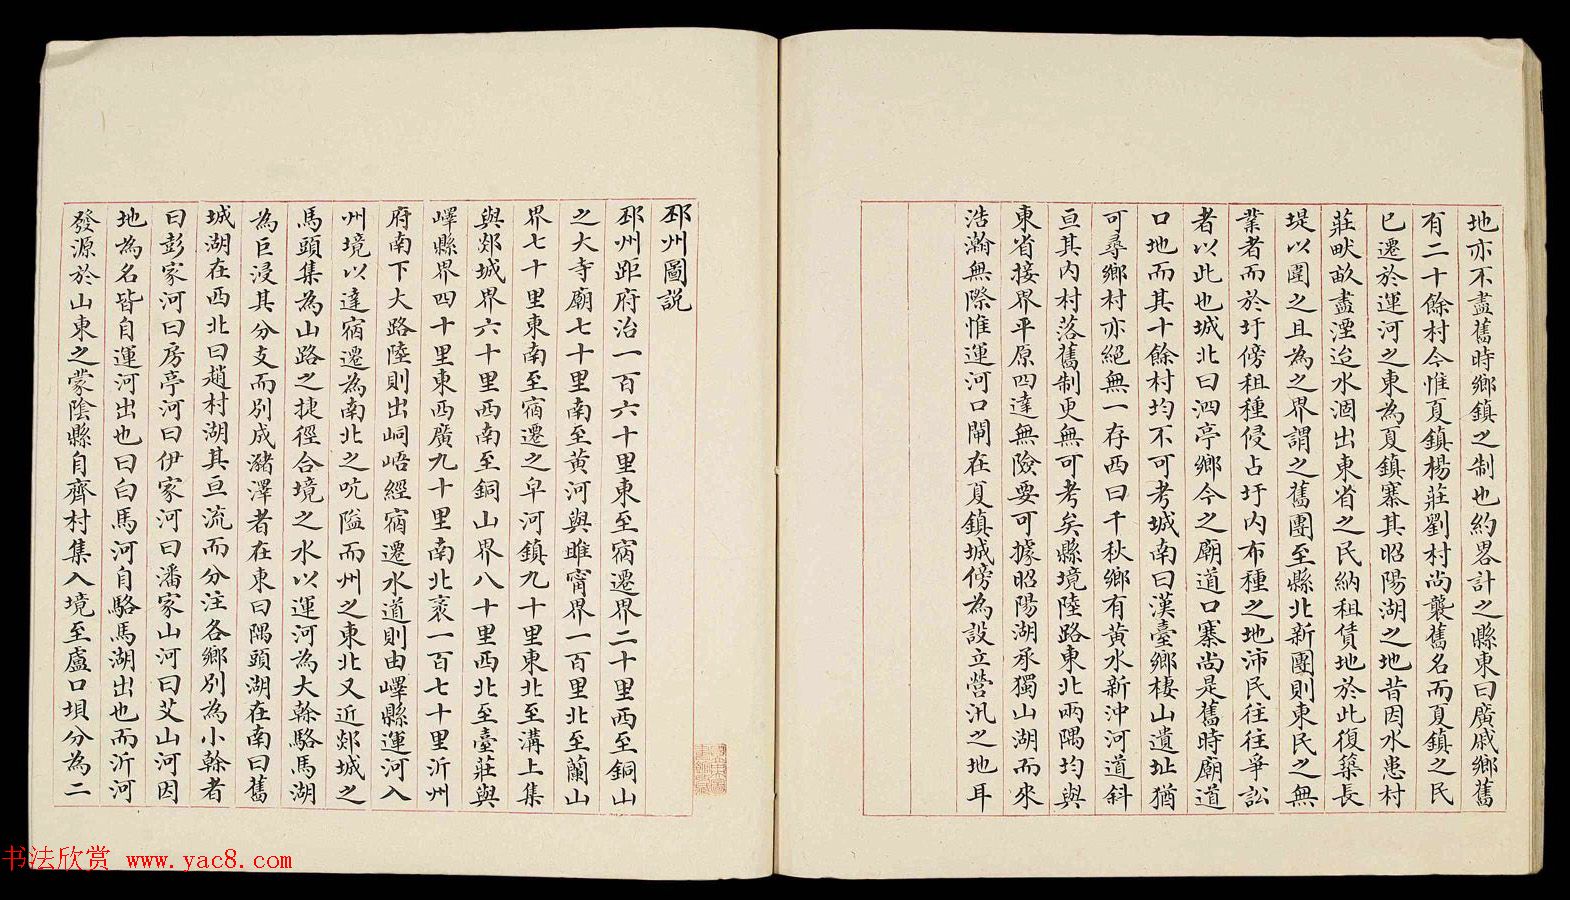 地亦不盡舊時鄉鎮之制也約畧計之縣東曰廣戚鄉舊
有二十餘村今惟夏鎮楊莊劉村尚襲舊名而夏鎮之民
已遷於運河之東為夏鎮寨其昭陽湖之地昔因水患村
莊畎畝盡湮迨水涸出東省之民納租賃地於此復築長
堤以圍之且為之界謂之舊團至縣北新團則東民之無
業者而於圩傍租種侵占圩内布種之地沛民往往爭訟
者以此也城北曰泗亭鄉今之廟道口寨尚是舊時廟道
口地而其十餘村均不可考城南曰漢臺鄉棲山遺址猶
可尋鄉村亦絕無一存西曰千秋鄉有黄水新沖河道斜
亘其内村落舊制更無可考矣縣境陸路東北兩隅均與
東省接界平原四達無險要可據昭陽湖承獨山湖而來
浩瀚無際惟運河口閘在夏鎮城傍為設立營汛之地耳
邳州圖説
邳州距府治一百六十里東至宿遷界二十里西至銅山
之大寺廟七十里南至黄河與睢甯界一百里北至蘭山
界七十里東南至宿遷之皁河鎮九十里東北至溝上集
與郯城界六十里西南至銅山界八十里西北至臺莊與
嶧縣界四十里東西廣九十里南北袤一百七十里沂州
府南下大路陸則出峒峿經宿遷水道則由嶧縣運河入
州境以達宿遷為南北之吭隘而州之東北又近郯城之
馬頭集為山路之捷徑合境之水以運河為大榦駱馬湖
為巨浸其分支而别成瀦澤者在東曰隅頭湖在南曰舊
城湖在西北曰趙村湖其亘流而分注各鄉别為小榦者
曰彭家河曰房亭河曰伊家河曰潘家山河曰艾山河因
地為名皆自運河出也曰白馬河自駱馬湖出也而沂河
發源於山東之蒙陰縣自齊村集入境至盧口壩分為二
书法欣赏 www.yac8.com